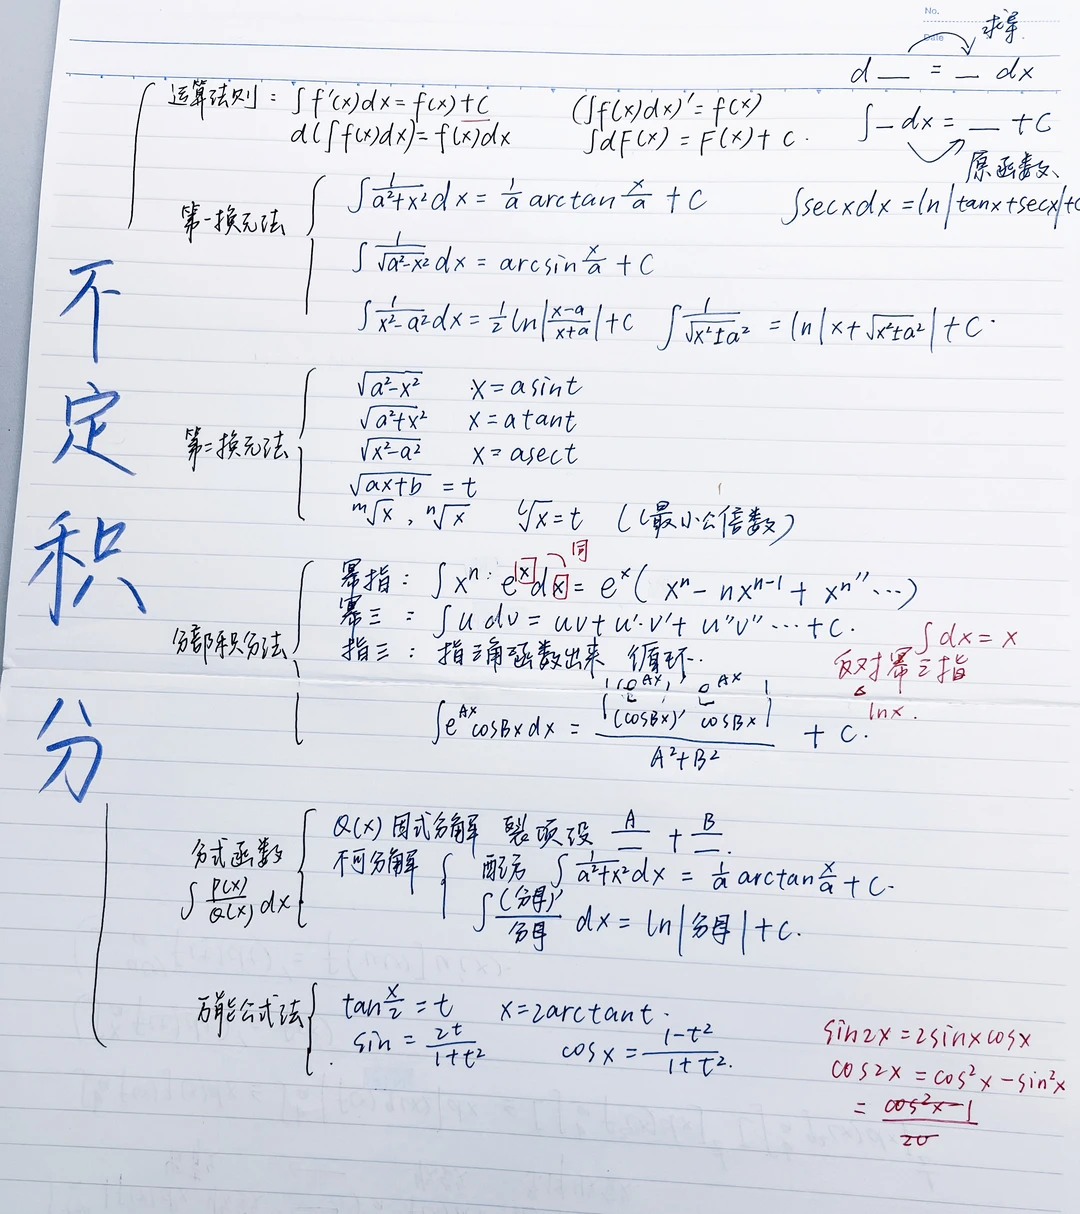 No.
Date
求导
d __ = __ dx
运算法则: ∫f'(x)dx = f(x)+C  (∫f(x)dx)' = f(x)
d(∫f(x)dx) = f(x)dx  ∫dF(x) = F(x)+C.
∫ __ dx = __ + C
原函数、
第一换元法
∫ 1/(a²+x²) dx = 1/a arctan x/a + C
∫secxdx = ln|tanx+secx|+C
∫ 1/√(a²-x²) dx = arcsin x/a + C
∫ 1/(x²-a²) dx = 1/2 ln|(x-a)/(x+a)| + C  ∫ 1/√(x²±a²) = ln|x+√(x²±a²)| + C.
第二换元法
√(a²-x²)  x = asint
√(a²+x²)  x = atant
√(x²-a²)  x = asect
√(ax+b) = t
ᵐ√x , ⁿ√x  ˡ√x = t (l最小公倍数)
不定积分
分部积分法
同
幂指: ∫xⁿ·eˣdx = eˣ( xⁿ - nxⁿ⁻¹ + xⁿ''…)
幂三: ∫u dv = uv + u'·v' + u''v''… + C.
指三: 指三角函数出来 循环..
∫dx = x
反对幂三指
lnx.
∫e^(Ax) cosBx dx = |(e^(Ax))' e^(Ax) (cosBx)' cosBx| / (A²+B²) + C.
分式函数
∫ P(x)/Q(x) dx
Q(x) 因式分解 裂项设 A/__ + B/__.
不可分解
配方 ∫ 1/(a²+x²) dx = 1/a arctan x/a + C.
∫ (分母)'/分母 dx = ln|分母| + C.
万能公式法
tan x/2 = t  x = 2arctant.
sin = 2t/(1+t²)  cosx = (1-t²)/(1+t²).
sin2x = 2sinxcosx
cos2x = cos²x - sin²x